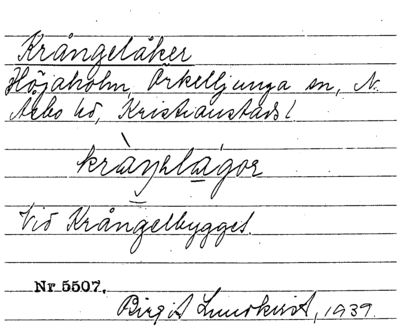 Krångelåker
Höjaholm, Örkelljunga sn, N.
Åsbo hd, Kristianstads l
Vid Krångelbygget.
Nr 5507.
Birgit Lundkvist, 1939.